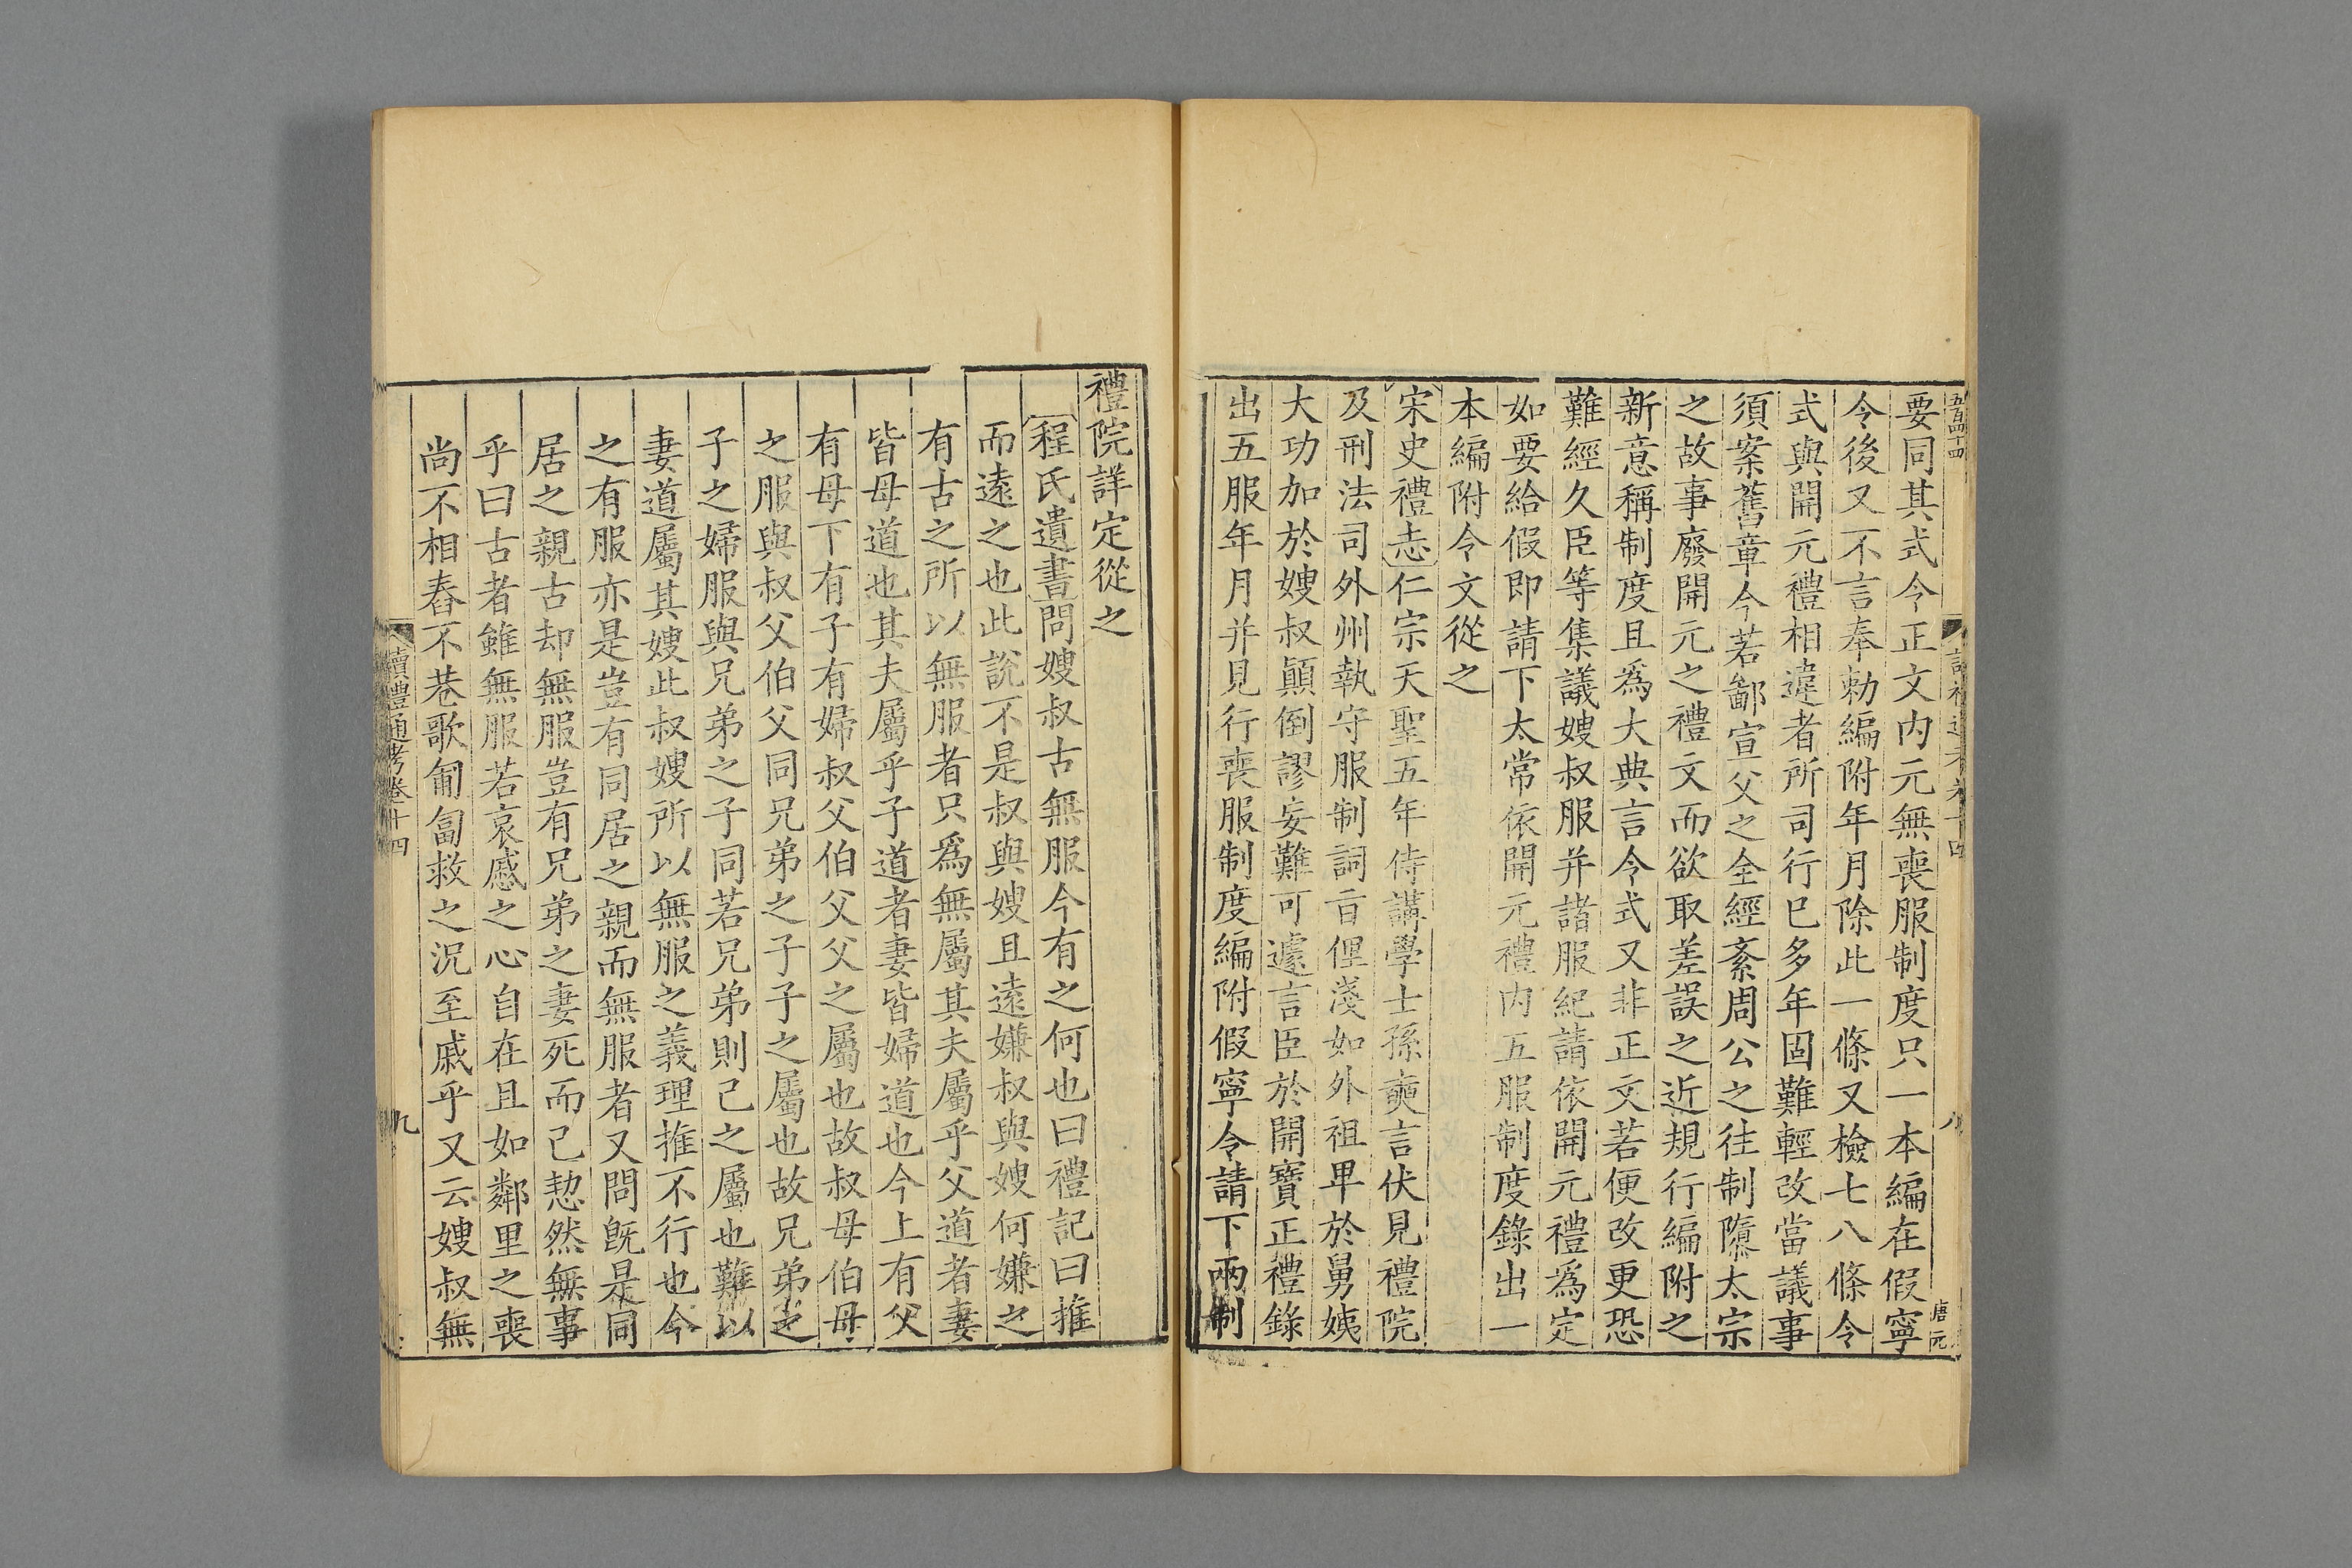 要同其式令正文内元無喪服制度只一本編在假寧
令後又不言奉勑編附年月除此一條又檢七八條令
式與開元禮相違者所司行已多年固難輕改當議事
須案舊章今若鄙宣父之全經紊周公之往制隳太宗
之故事廢開元之禮文而欲取差誤之近規行編附之
新意稱制度且爲大典言令式又非正文若便改更恐
難經久臣等集議嫂叔服并諸服紀請依開元禮爲定
如要給假即請下太常依開元禮内五服制度錄出一
本編附令文從之
宋史禮志仁宗天聖五年侍講學士孫奭言伏見禮院
及刑法司外州執守服制詞旨俚淺如外祖卑於舅姨
大功加於嫂叔顚倒謬妄難可遽言臣於開寶正禮錄
出五服年月并見行喪服制度編附假寧令請下兩制
禮院詳定從之
程氏遺書問嫂叔古無服今有之何也曰禮記曰推
而遠之也此說不是叔與嫂且遠嫌叔與嫂何嫌之
有古之所以無服者只爲無屬其夫屬乎父道者妻
皆母道也其夫屬乎子道者妻皆婦道也今上有父
有母下有子有婦叔父伯父父之屬也故叔母伯母
之服與叔父伯父同兄弟之子子之屬也故兄弟之
子之婦服與兄弟之子同若兄弟則己之屬也難以
妻道屬其嫂此叔嫂所以無服之義理推不行也今
之有服亦是豈有同居之親而無服者又問旣是同
居之親古却無服豈有兄弟之妻死而己恝然無事
乎曰古者雖無服若哀慼之心自在且如鄰里之喪
尚不相舂不巷歌匍匐救之況至戚乎又云嫂叔無
續禮通考卷十四
九